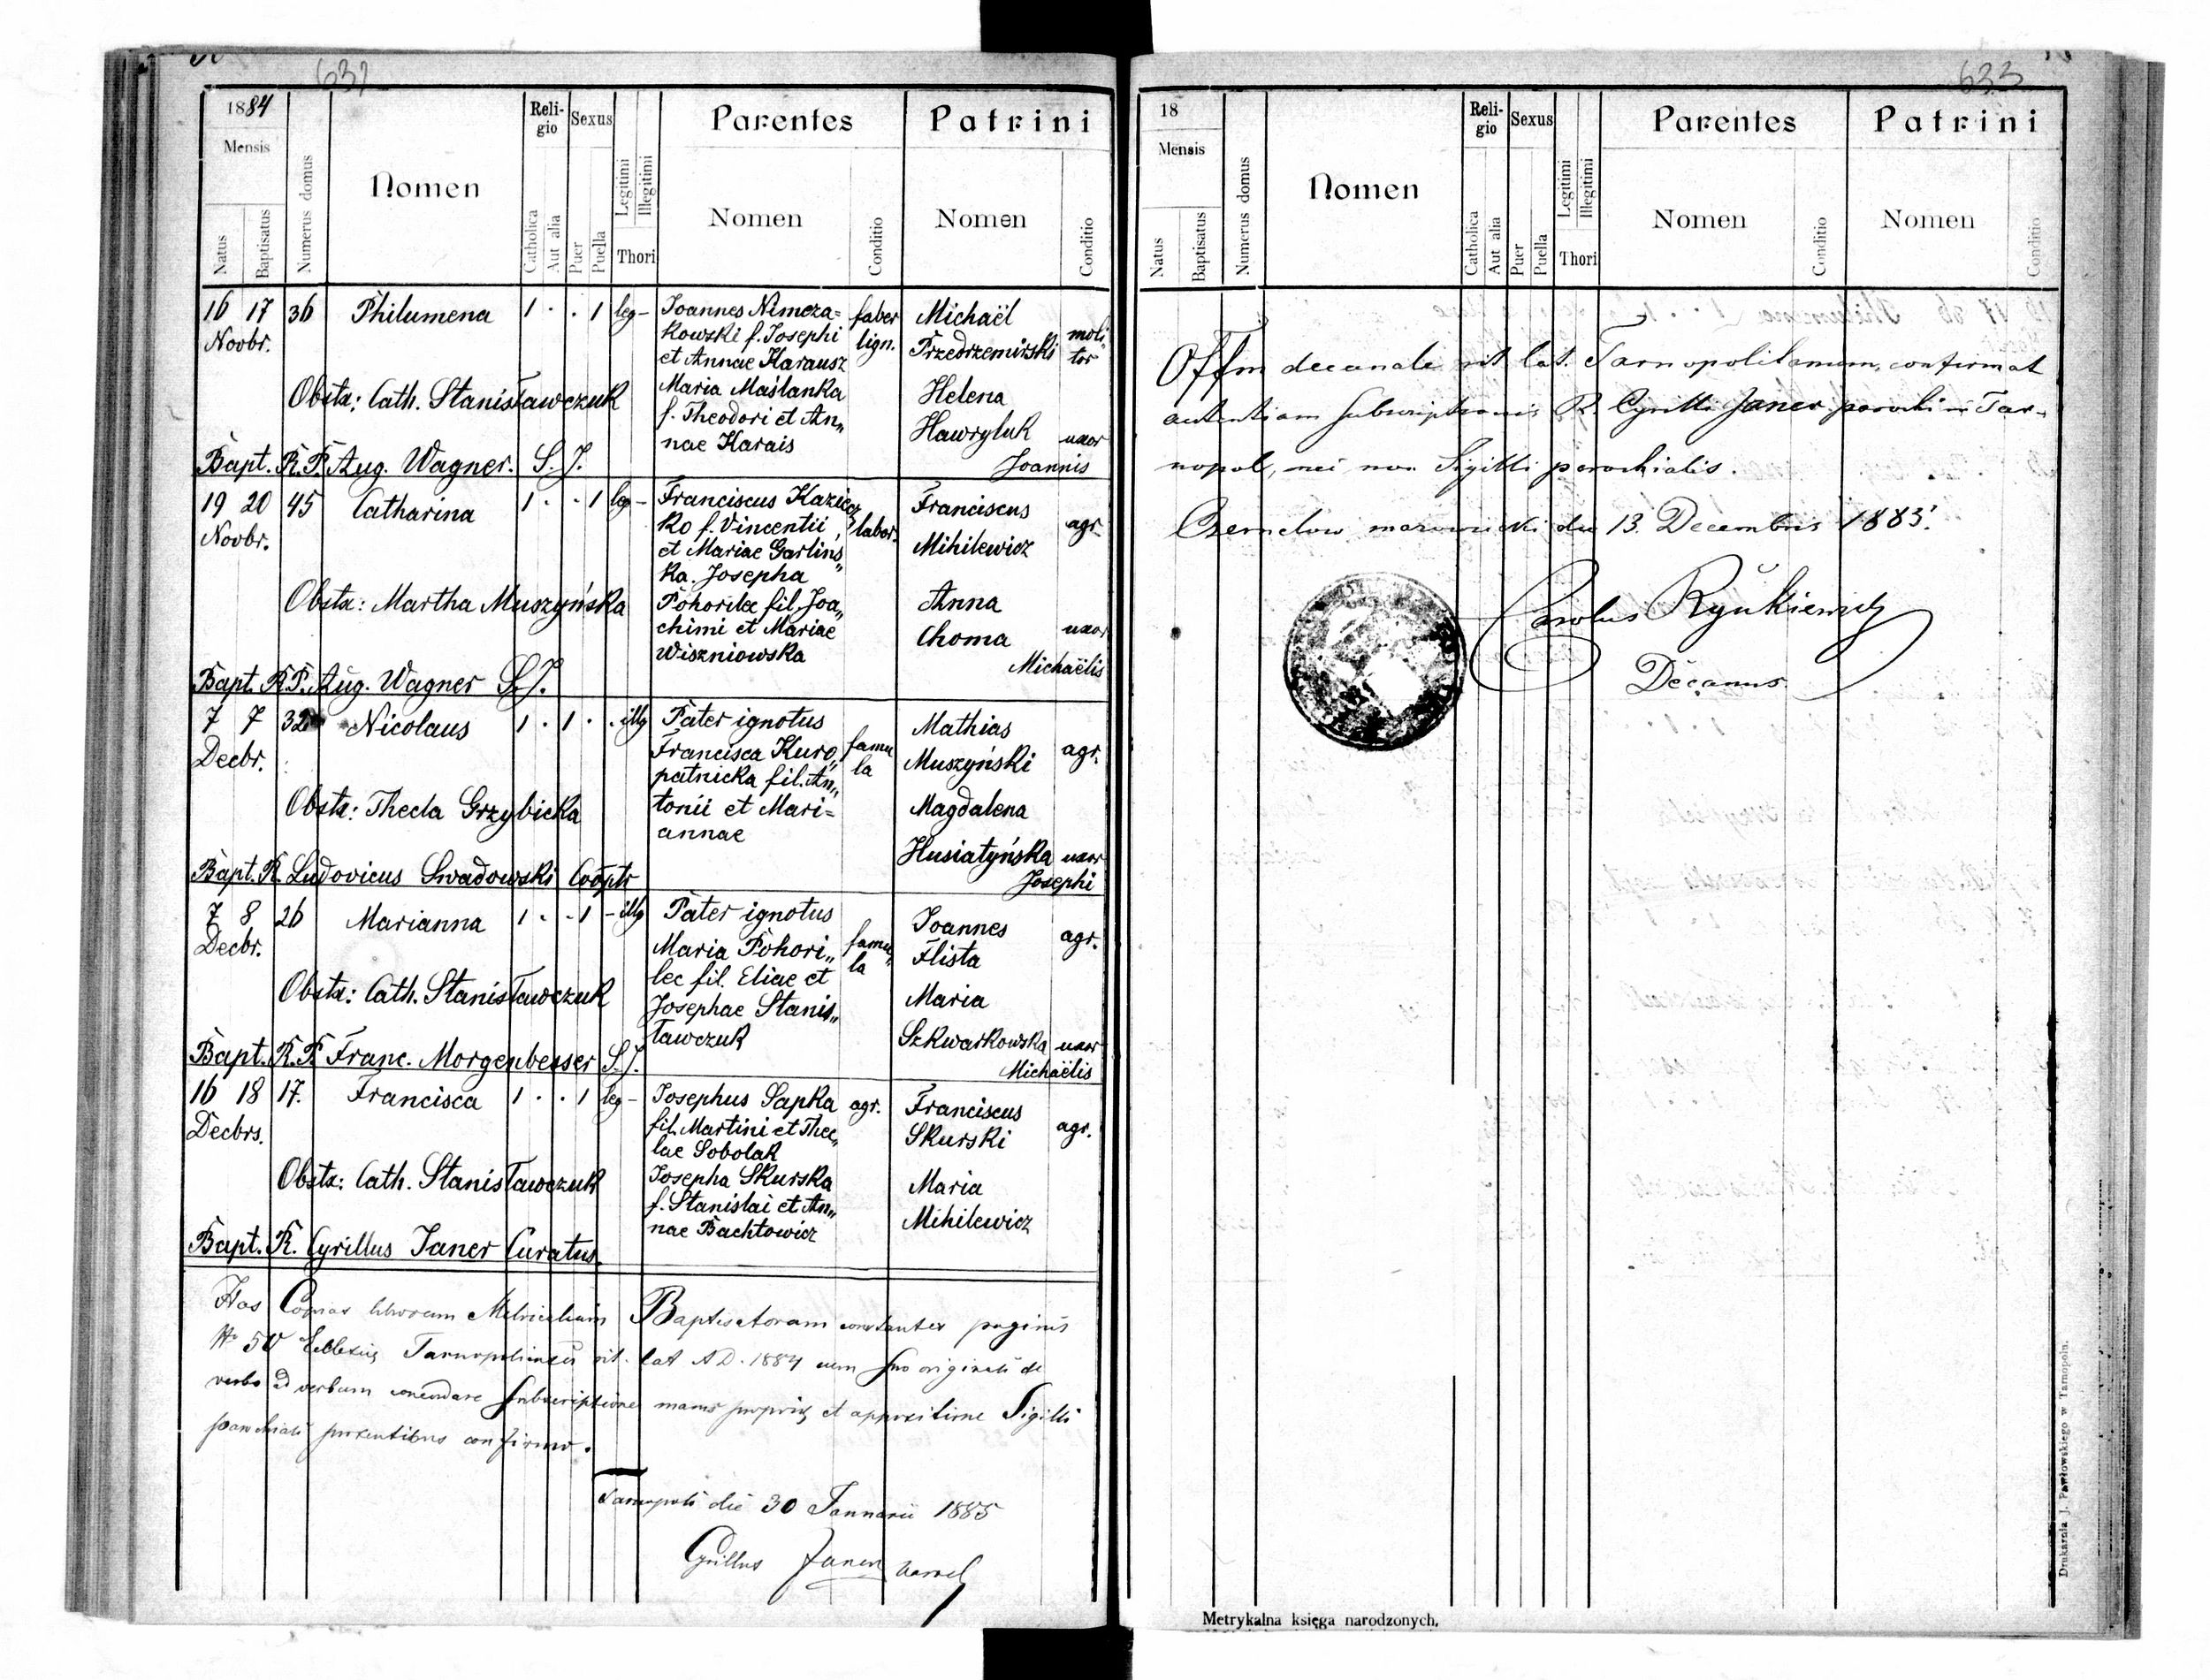 632
1884
Mensis
Natus
Baptisatus
Numerus domus
Nomen
Reli-
gio
Catholica
Aut alia
Sexus
Puer
Puella
Legitimi
Illegitimi
Thori
Parentes
Nomen
Conditio
Patrini
Nomen
Conditio
16 17 36 Philumena 1 . . 1 leg-
Novbr.
Obstx: Cath. Stanisławczuk
Joannes Nimcza=
kowski f. Josephi
et Annae Karausz
Maria Maślanka
f. Theodori et An„
nae Karais
faber
lign.
Michaël
Przedrzemirski
moli„
tor
Helena
Hawryluk uxor
Joannis
Bapt. R.P. Aug. Wagner. S.J.
19 20 45 Catharina 1 . . 1 leg-
Novbr.
Obstx: Martha Muszyńska
Franciscus Kazicz„
ko f. Vincentii
et Mariae Garlins„
ka. Josepha
Pohorilec fil. Joa„
chimi et Mariae
Wiszniowska
labor.
Franciscus
Mihilewicz
agr.
Anna
Choma uxor
Michaëlis
Bapt. R.P. Aug. Wagner S.J.
7 7 32 Nicolaus 1 . 1 . . illg
Decbr.
Obstx: Thecla Grzybicka
Pater ignotus
Francisca Kuro„
patnicka fil. An„
tonii et Mari=
annae
famu
la
Mathias
Muszyński
agr.
Magdalena
Husiatyńska uxor
Josephi
Bapt. R. Ludovicus Swadowski Coopts
7 8 26 Marianna 1 . . 1 - illg
Decbr.
Obstx: Cath. Stanisławczuk
Pater ignotus
Maria Pohori„
lec fil. Eliae et
Josephae Stanis„
ławczuk
famu„
la
Joannes
Flista
agr.
Maria
Szkwarkowska uxor
Michaëlis
Bapt. R.P. Franc. Morgenbesser S.J.
16 18 17. Francisca 1 . . 1 leg-
Decbrs.
Obstx: Cath. Stanisławczuk
Josephus Sapka
fil. Martini et Thec„
lae Sobolak
Josepha Skurska
f. Stanislai et An„
nae Bachtowicz
agr.
Franciscus
Skurski
agr.
Maria
Mihilewicz
Bapt. R. Cyrillus Janer Curatus.
Has Copias librorum Metricalium Baptisatorum constantes paginis
Nr 50 Ecclesiæ Tarnopoliensis rit. lat A.D. 1884 cum suo originali de
verbo ad verbum concordare subscriptione manus propriæ et appositione Sigilli
parochiali præsentibus confirmo.
Tarnopoli die 30 Januarii 1885
Cyrillus Janer
633
18
Mensis
Natus
Baptisatus
Numerus domus
Nomen
Reli-
gio
Catholica
Aut alia
Sexus
Puer
Puella
Legitimi
Illegitimi
Thori
Parentes
Nomen
Conditio
Patrini
Nomen
Conditio
Offm decanale rit. lat. Tarnopolitanum, confirmat
autentiam subscriptionis R. Cyrilli Janer parochi in Tar-
nopol, nec non Sigilli parochialis.
Czernelow mazowiecki die 13. Decembris 1885.
Carolus
Decanus
Drukarnia J. Pawłowskiego w Tarnopolu.
Metrykalna księga narodzonych.